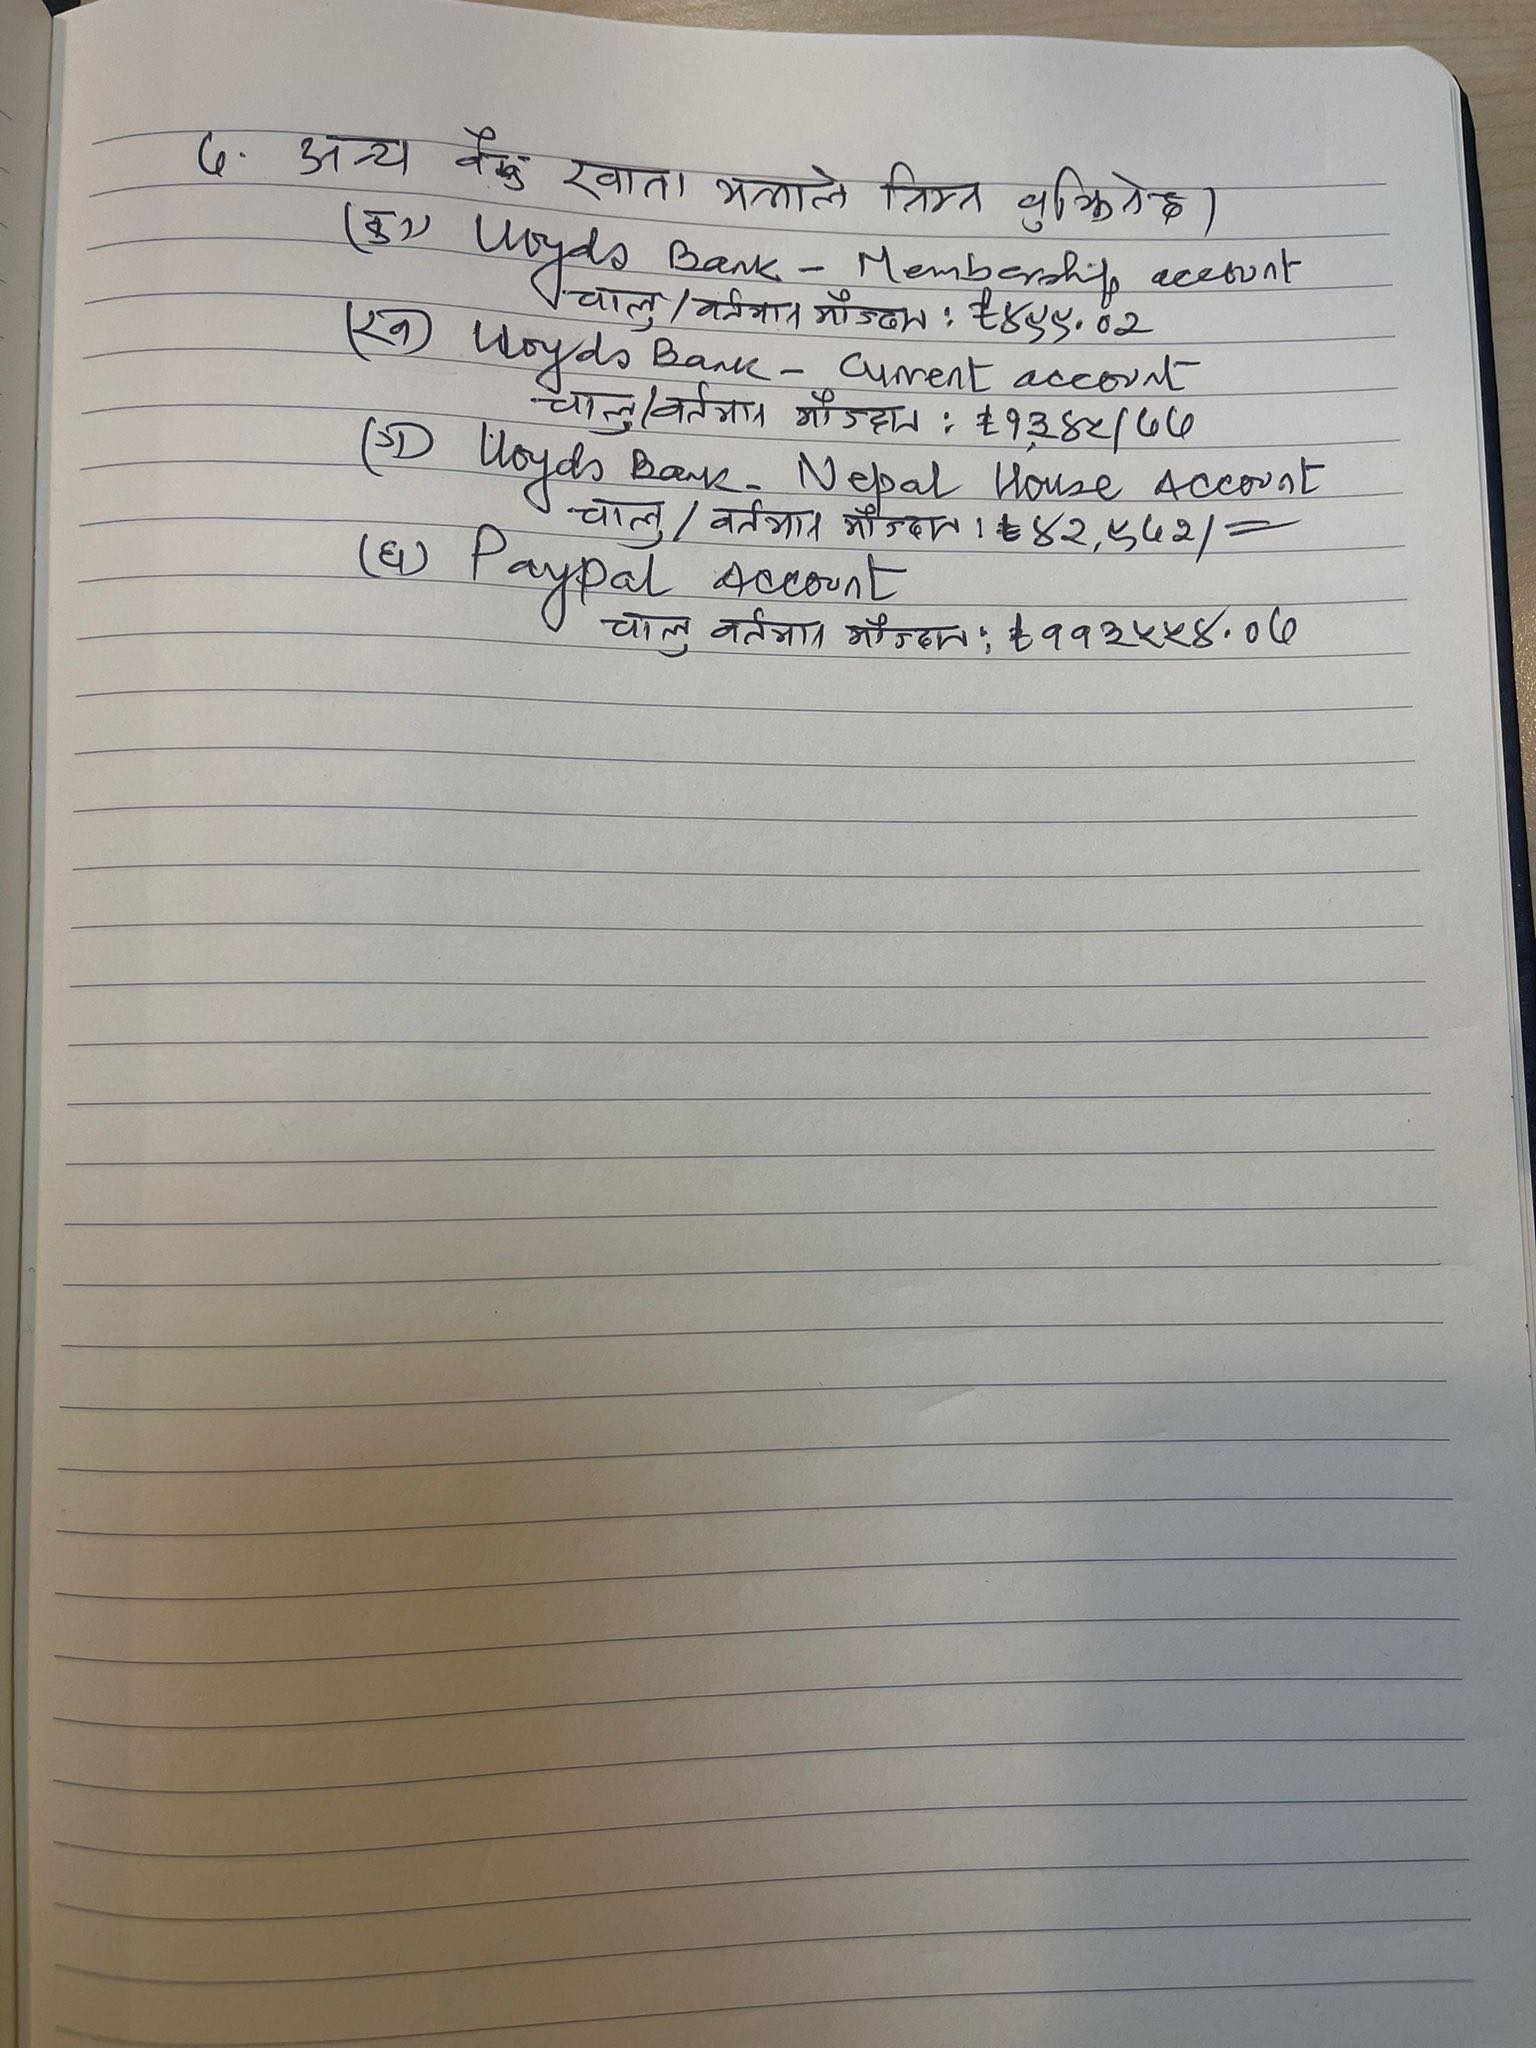 ७. अन्य बैंक खाता भन्नाले निम्न बुझिनेछ।
(क) Lloyds Bank - Membership account
चालु/वर्तमान मौज्दात: £४५५.०२
(ख) Lloyds Bank - Current account
चालु/वर्तमान मौज्दात: £१३४८/७७
(ग) Lloyds Bank - Nepal House Account
चालु/वर्तमान मौज्दात: £४२,५७२/=
(घ) Paypal Account
चालु वर्तमान मौज्दात: